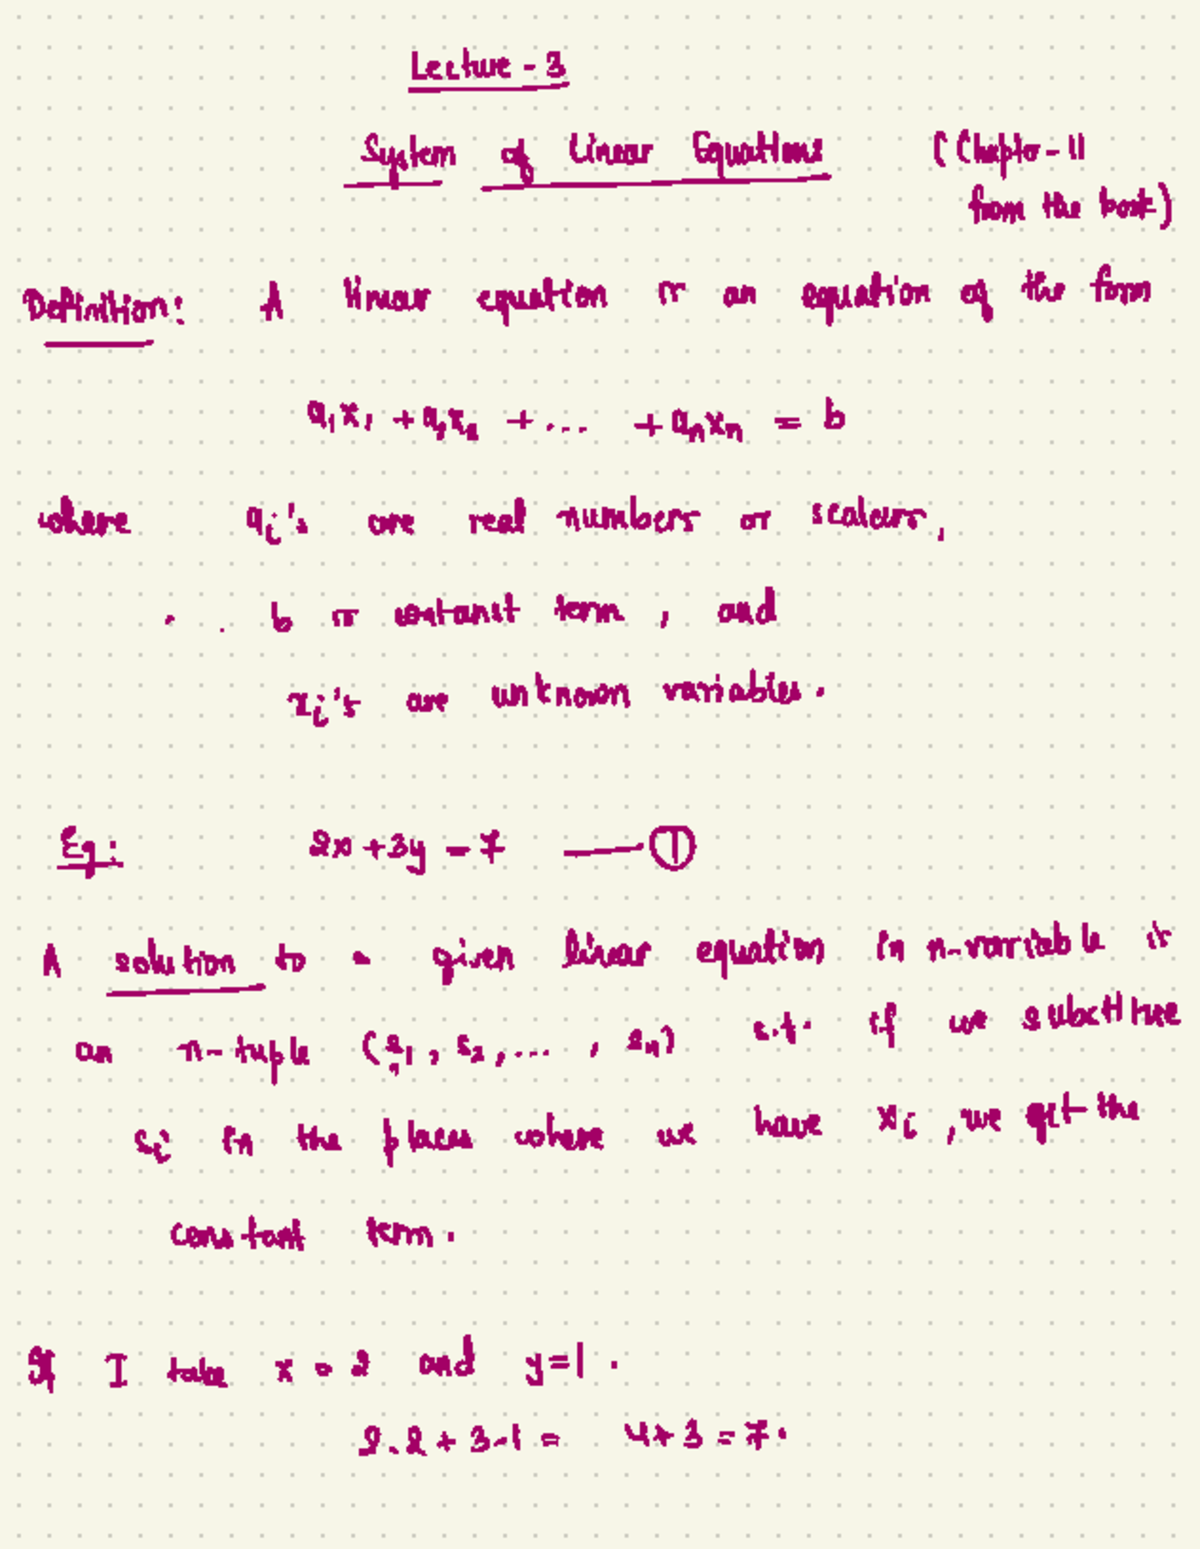 Lecture - 3
System of Linear Equations (Chapter - 11
from the book)
Definition: A linear equation is an equation of the form
a₁x₁ + a₂x₂ + ... + aₙxₙ = b
where aᵢ's are real numbers or scalars,
b is constant term, and
xᵢ's are unknown variables.
Eg: 2x + 3y = 7 — ①
A solution to a given linear equation in n-variable is
an n-tuple (s₁, s₂, ... , sₙ) s.t. if we substitute
sᵢ in the places where we have xᵢ, we get the
constant term.
If I take x = 2 and y = 1 .
2.2 + 3.1 = 4 + 3 = 7.